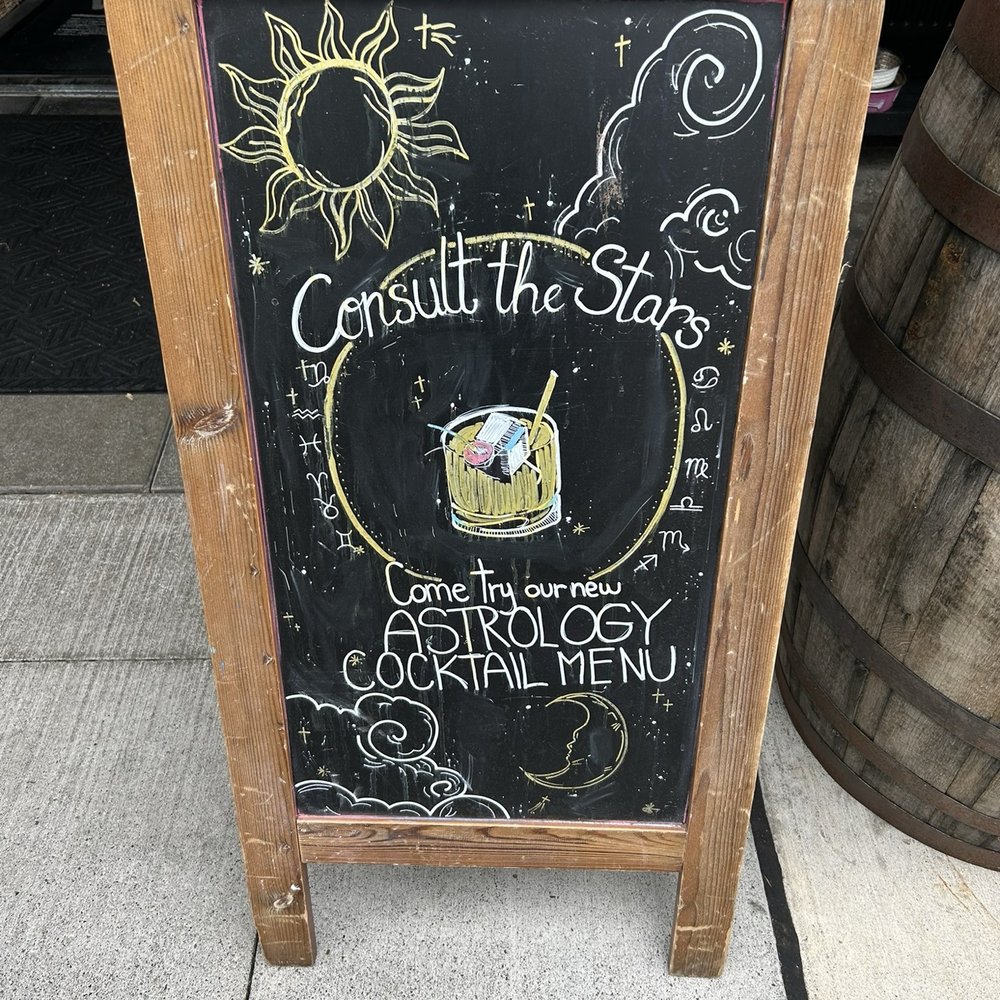 Consult the Stars
Come try our new
ASTROLOGY
COCKTAIL MENU